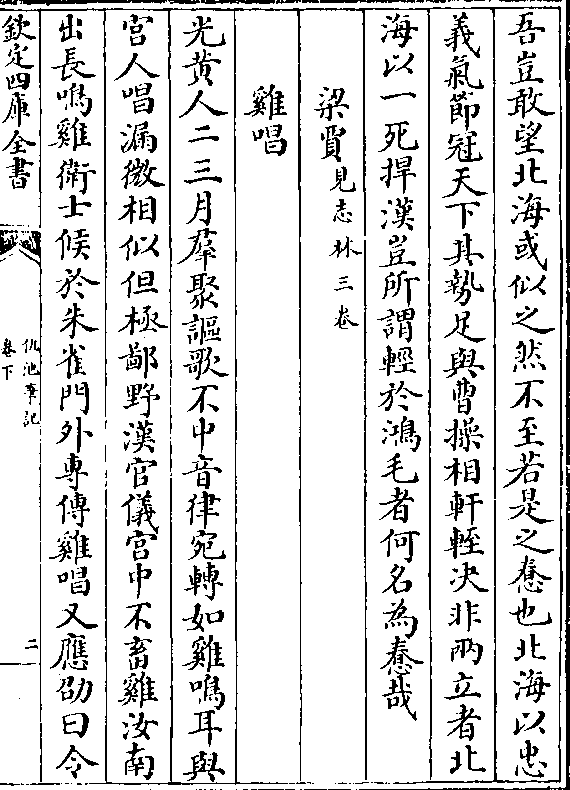 吾豈敢望北海或似之然不至若是之惷也北海以忠
義氣節冠天下其勢足與曹操相軒輊决非兩立者北
海以一死捍漢豈所謂輕於鴻毛者何名為惷哉
梁賈見志林三卷
雞唱
光黄人二三月羣聚謳歌不中音律宛轉如雞鳴耳與
宫人唱漏微相似但極鄙野漢官儀宫中不畜雞汝南
出長鳴雞衛士候於朱雀門外專傳雞唱又應劭曰今
欽定四庫全書
仇池筆記
卷下
二